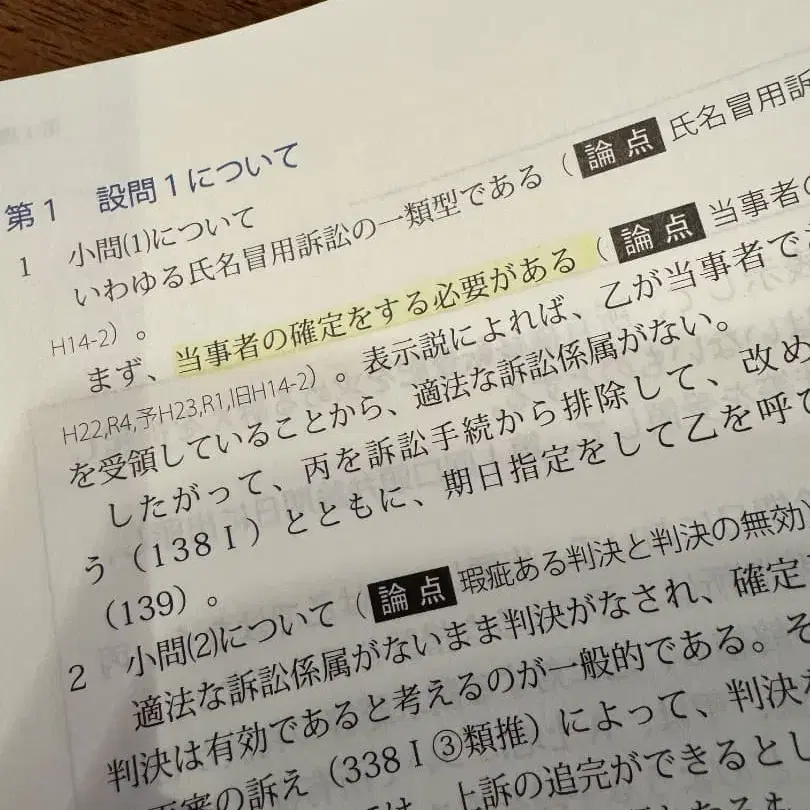 第1 設問1について
1 小問(1)について
いわゆる氏名冒用訴訟の一類型である（論点 氏名冒用訴
H14-2）。
まず、当事者の確定をする必要がある（論点 当事者の
H22,R4,予H23,R1,旧H14-2）。表示説によれば、乙が当事者で
を受領していることから、適法な訴訟係属がない。
したがって、丙を訴訟手続から排除して、改め
う（138Ⅰ）とともに、期日指定をして乙を呼で
（139）。
2 小問(2)について（論点 瑕疵ある判決と判決の無効）
適法な訴訟係属がないまま判決がなされ、確定
判決は有効であると考えるのが一般的である。そ
再審の訴え（338Ⅰ③類推）によって、判決
上訴の追完ができるとし